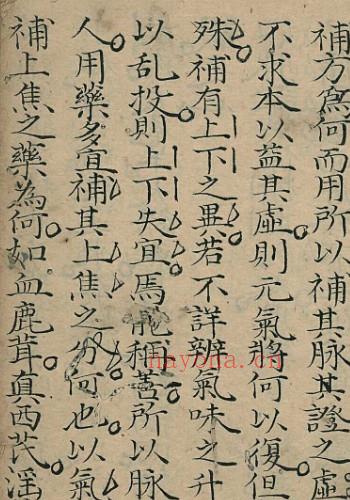 補方為何而用所以補其脉其證之虛
不求本以益其虛則元氣將何以復但
殊補有上下之異若不詳辨氣味之升
以乱投則上下失宜焉能稱善所以脉
人用藥多宜補其上焦之分何也以氣
補上焦之藥為何如血鹿茸真西芪淫
hayona.cn